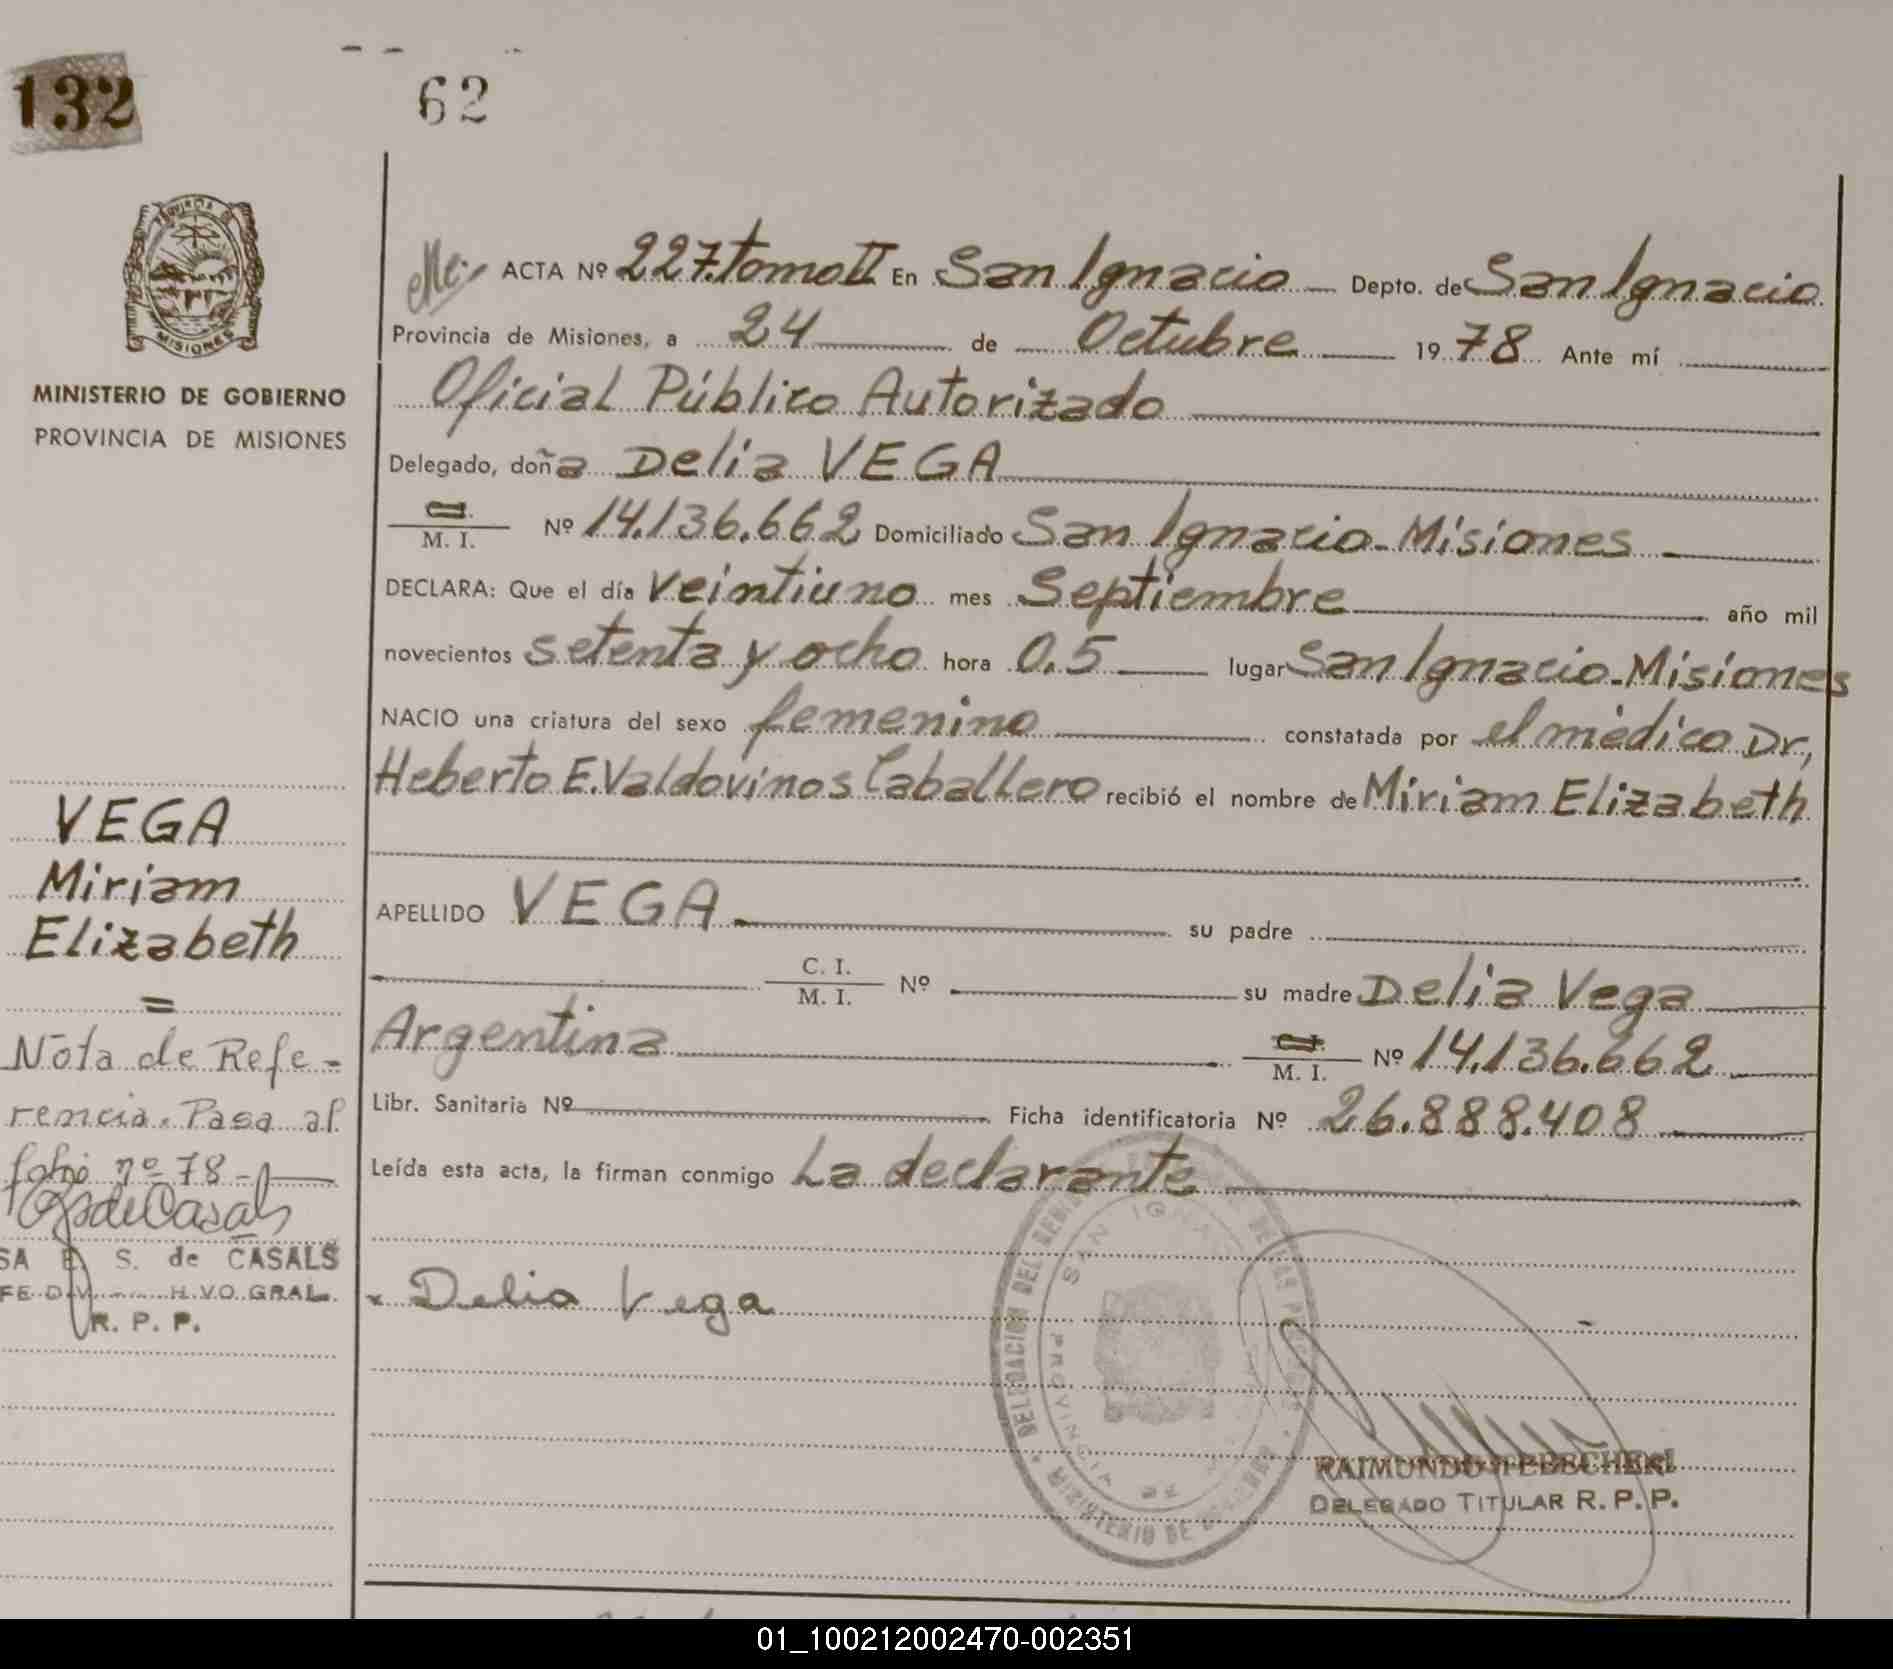 132
62
PROVINCIA DE
MISIONES
MINISTERIO DE GOBIERNO
PROVINCIA DE MISIONES
ACTA Nº 227.tomo II En San Ignacio Depto. de San Ignacio
Provincia de Misiones, a 24 de Octubre 1978 Ante mí
Oficial Público Autorizado
Delegado, doña Delia VEGA
M. I. Nº 14.136.662 Domiciliado San Ignacio-Misiones
DECLARA: Que el día veintiuno mes Septiembre año mil
novecientos setenta y ocho hora 0.5 lugar San Ignacio-Misiones
NACIO una criatura del sexo femenino constatada por el médico Dr,
Heberto E. Valdovinos Caballero recibió el nombre de Miriam Elizabeth
APELLIDO VEGA su padre
C. I.
M. I. Nº su madre Delia Vega
Argentina C.I. M. I. Nº 14.136.662
Libr. Sanitaria Nº Ficha identificatoria Nº 26.888.408
Leída esta acta, la firman conmigo La declarante
Delia Vega
VEGA
Miriam
Elizabeth
=
Nota de Refe-
rencia. Pasa al
folio nº 78-
S. de CASALS
R. P. P.
DELEGACION DEL
SAN IGNA
PROVINCIA DE
MINISTERIO DE
RAIMUNDO
DELEGADO TITULAR R. P. P.
01_100212002470-002351